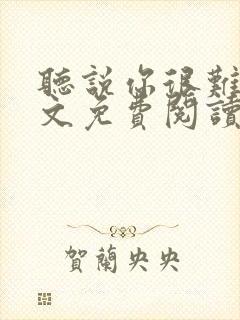 聽說你很難
文免費閱讀
賀蘭央央